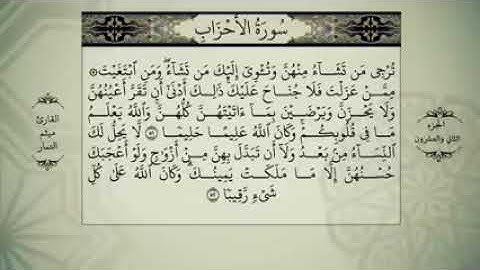 سُورَةُ الأَحْزَابِ
تُرْجِي مَن تَشَآءُ مِنْهُنَّ وَتُـْٔوِىٓ إِلَيْكَ مَن تَشَآءُ ۖ وَمَنِ ٱبْتَغَيْتَ
مِمَّنْ عَزَلْتَ فَلَا جُنَاحَ عَلَيْكَ ۚ ذَٰلِكَ أَدْنَىٰٓ أَن تَقَرَّ أَعْيُنُهُنَّ
وَلَا يَحْزَنَّ وَيَرْضَيْنَ بِمَآ ءَاتَيْتَهُنَّ كُلُّهُنَّ ۚ وَٱللَّهُ يَعْلَمُ
مَا فِى قُلُوبِكُمْ ۚ وَكَانَ ٱللَّهُ عَلِيمًا حَلِيمًا ۝٥١ لَّا يَحِلُّ لَكَ
ٱلنِّسَآءُ مِنۢ بَعْدُ وَلَآ أَن تَبَدَّلَ بِهِنَّ مِنْ أَزْوَٰجٍ وَلَوْ أَعْجَبَكَ
حُسْنُهُنَّ إِلَّا مَا مَلَكَتْ يَمِينُكَ ۗ وَكَانَ ٱللَّهُ عَلَىٰ كُلِّ
شَىْءٍ رَّقِيبًا ۝٥٢
الجزء
الثاني والعشرون
القارئ
ميثم
التمار